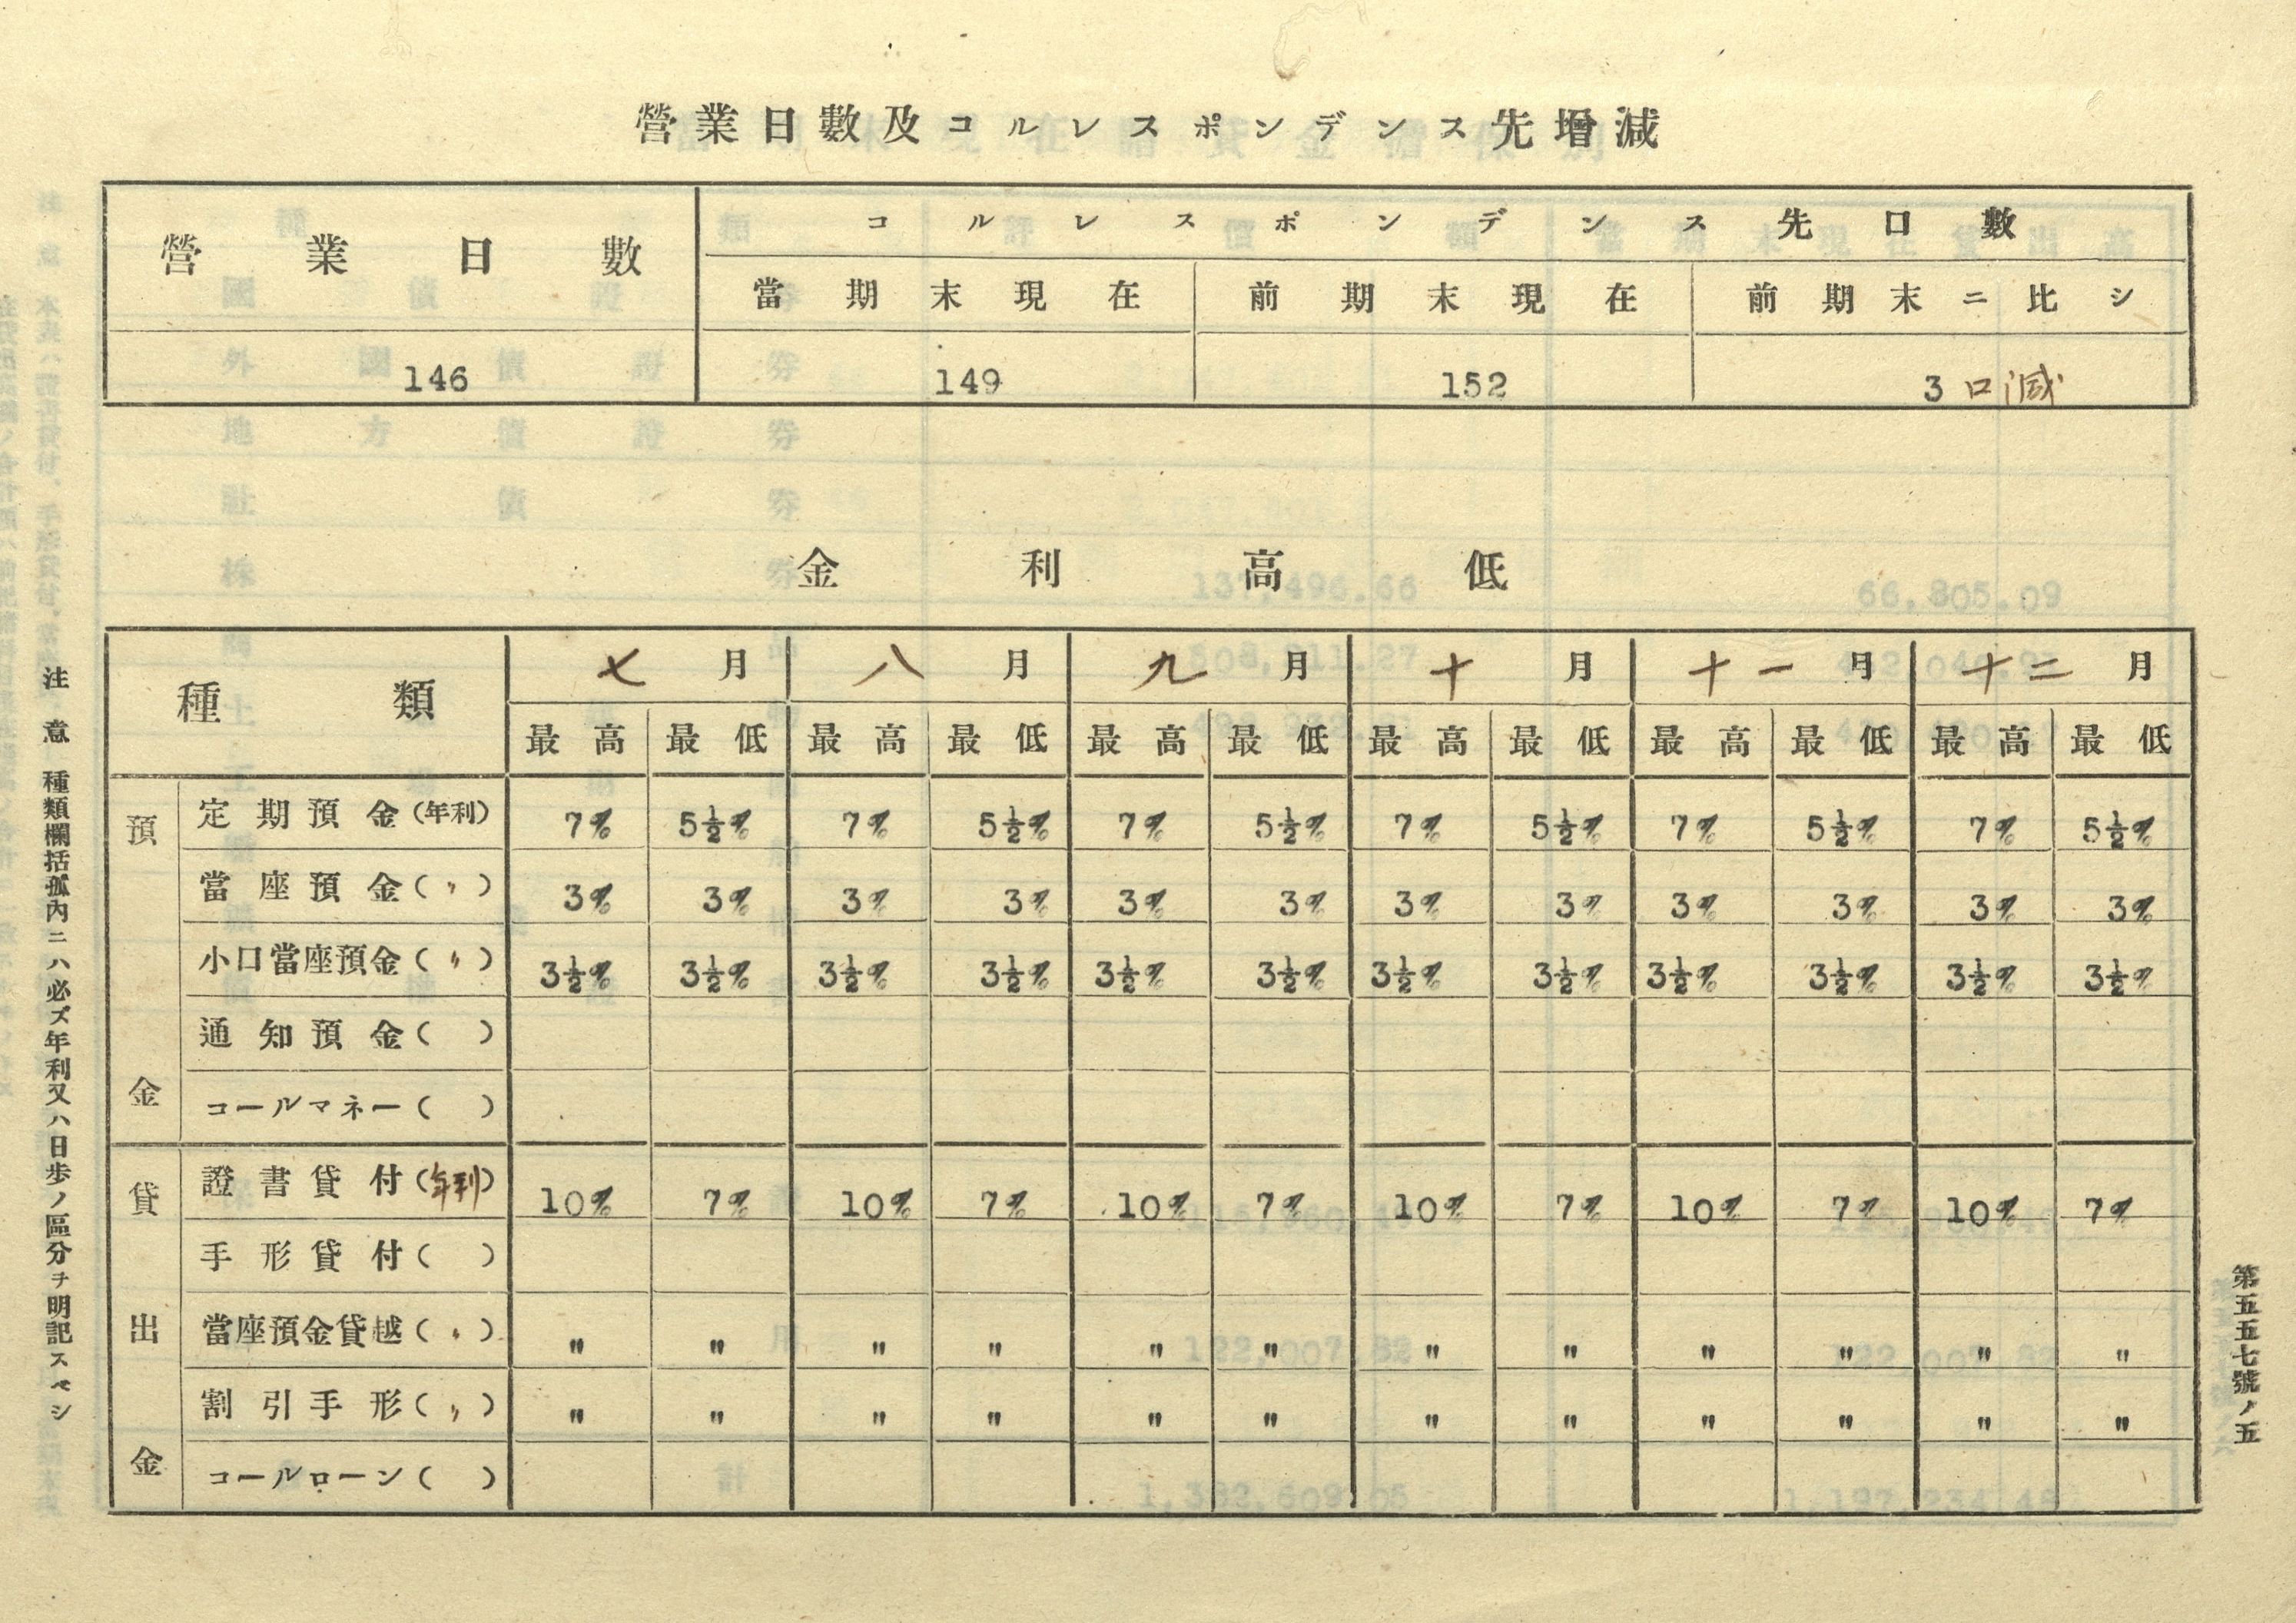 營業日數及コルレスポンデンス先增減
營業日數
コルレスポンデンス先口數
當期末現在 前期末現在 前期末ニ比シ
146 149 152 3 口減
金利高低
種類 七月 八月 九月 十月 十一月 十二月
最高 最低 最高 最低 最高 最低 最高 最低 最高 最低 最高 最低
預金
定期預金(年利) 7% 5½% 7% 5½% 7% 5½% 7% 5½% 7% 5½% 7% 5½%
當座預金(〃) 3% 3% 3% 3% 3% 3% 3% 3% 3% 3% 3% 3%
小口當座預金(〃) 3½% 3½% 3½% 3½% 3½% 3½% 3½% 3½% 3½% 3½% 3½% 3½%
通知預金( )
コールマネー( )
貸出金
證書貸付(年利) 10% 7% 10% 7% 10% 7% 10% 7% 10% 7% 10% 7%
手形貸付( )
當座預金貸越(〃) " " " " " " " " " " " "
割引手形(〃) " " " " " " " " " " " "
コールローン( )
注意 種類欄括孤內ニハ必ズ年利又ハ日步ノ區分ヲ明記スベシ
第五五七號ノ五